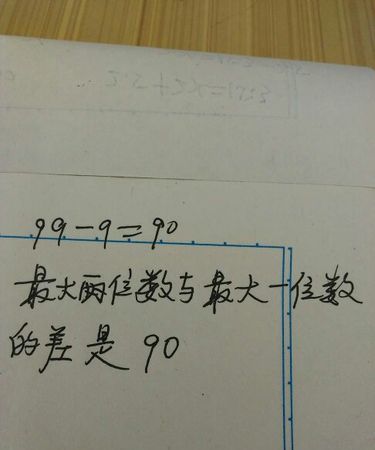 99-9=90
最大两位数与最大一位数
的差是 90